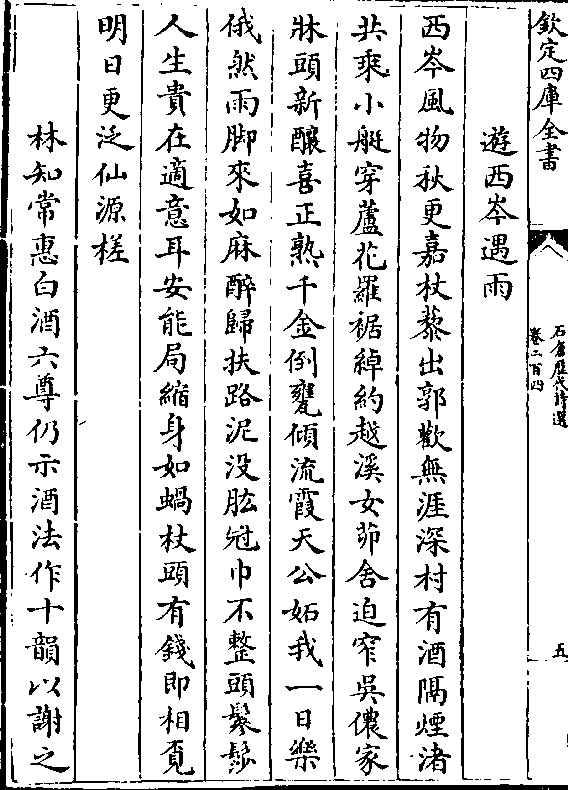 欽定四庫全書
石倉歷代詩選
卷二百四
五
遊西岑遇雨
西岑風物秋更嘉杖藜出郭歡無涯深村有酒隔煙渚
共乘小艇穿蘆花羅裾綽約越溪女茆舍迫窄吳儂家
牀頭新釀喜正熟千金倒甕傾流霞天公妬我一日樂
俄然雨脚來如麻醉歸扶路泥没肱冠巾不整頭鬅髿
人生貴在適意耳安能局縮身如蝸杖頭有錢即相覔
明日更泛仙源槎
林知常惠白酒六尊仍示酒法作十韻以謝之